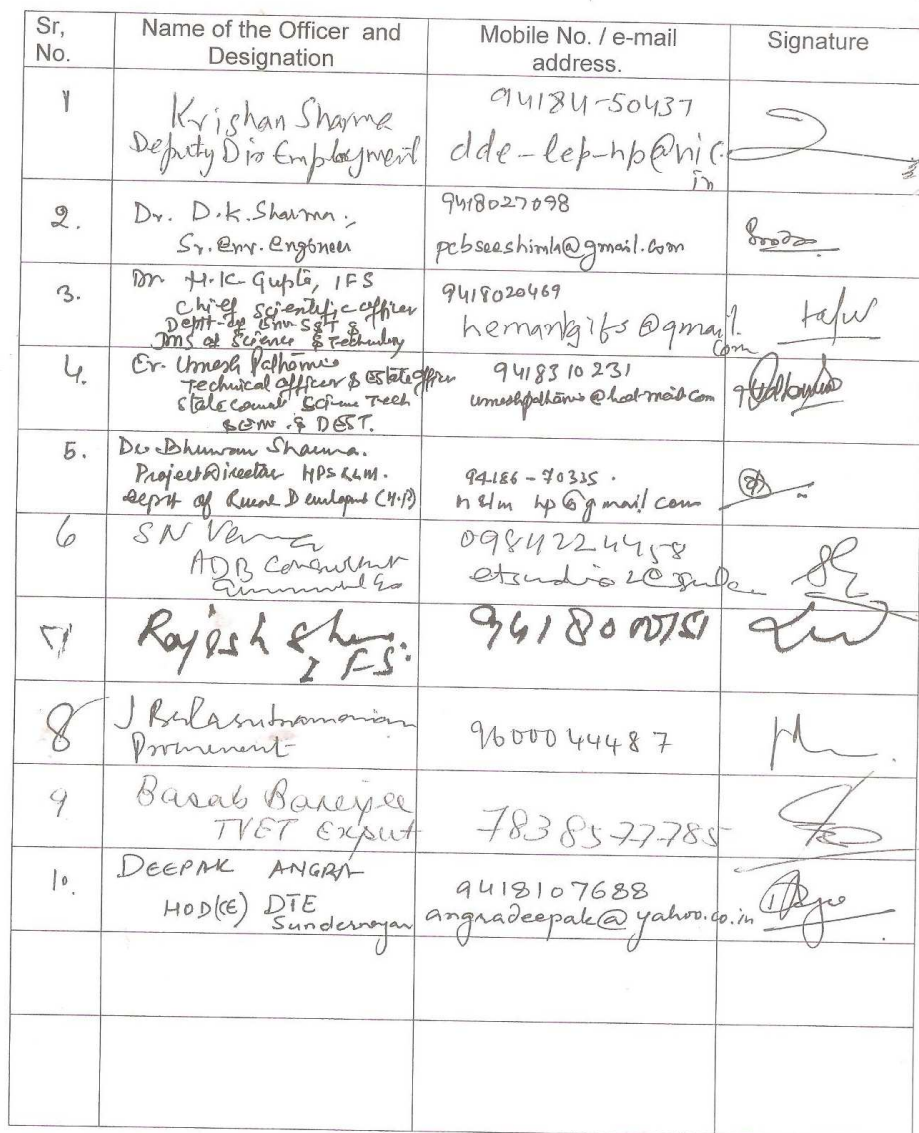 Sr, No.
Name of the Officer and Designation
Mobile No. / e-mail address.
Signature
1
Krishan Sharma
Deputy Dir Employment
94184-50437
dde-lep-hp@nic.
in
2.
Dr. D.K. Sharma.,
Sr. Env. Engineer
9418027098
pcbseeshimla@gmail.com
3.
Dr H.K. Gupta, IFS
Chief Scientific Officer
Deptt-of Env. S&T &
of Science & Technology
9418020469
@gmail.
com
4.
Er. Umesh
Technical Officer & Estate Officer
State Science Tech
& DEST.
9418310231
@hotmail.com
5.
Sharma.
Project Director
Deptt of Rural (H.P)
94186-70335.
hp@gmail.com
6
SN Verma
ADB Consultant
7
Rajesh
IFS.
8
J Balasubramanian
9600044487
9
Basab Banerjee
TVET Expert
7838577785
10.
DEEPAK ANGRA
HOD(CE) DTE
Sundernagar
9418107688
angradeepak@yahoo.co.in